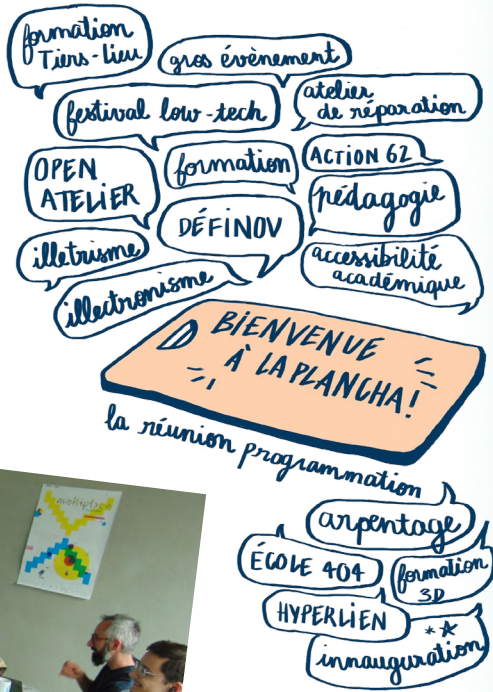 formation
Tiers-lieu
gros évènement
festival low-tech
atelier
de réparation
OPEN
ATELIER
formation
ACTION 62
pédagogie
DÉFINOV
illetrisme
accessibilité
académique
illectronisme
BIENVENUE
À LA PLANCHA!
la réunion programmation
arpentage
ÉCOLE 404
formation
3D
HYPERLIEN
innauguration